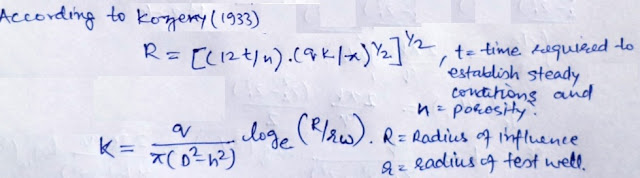 According to Kozeny (1933)
R = [(12t/n).(qk/π)^½]^½, t = time required to
establish steady
conditions and
n = porosity.
k = q/π(D²-h²) logₑ (R/rw). R = Radius of influence
r = radius of test well.